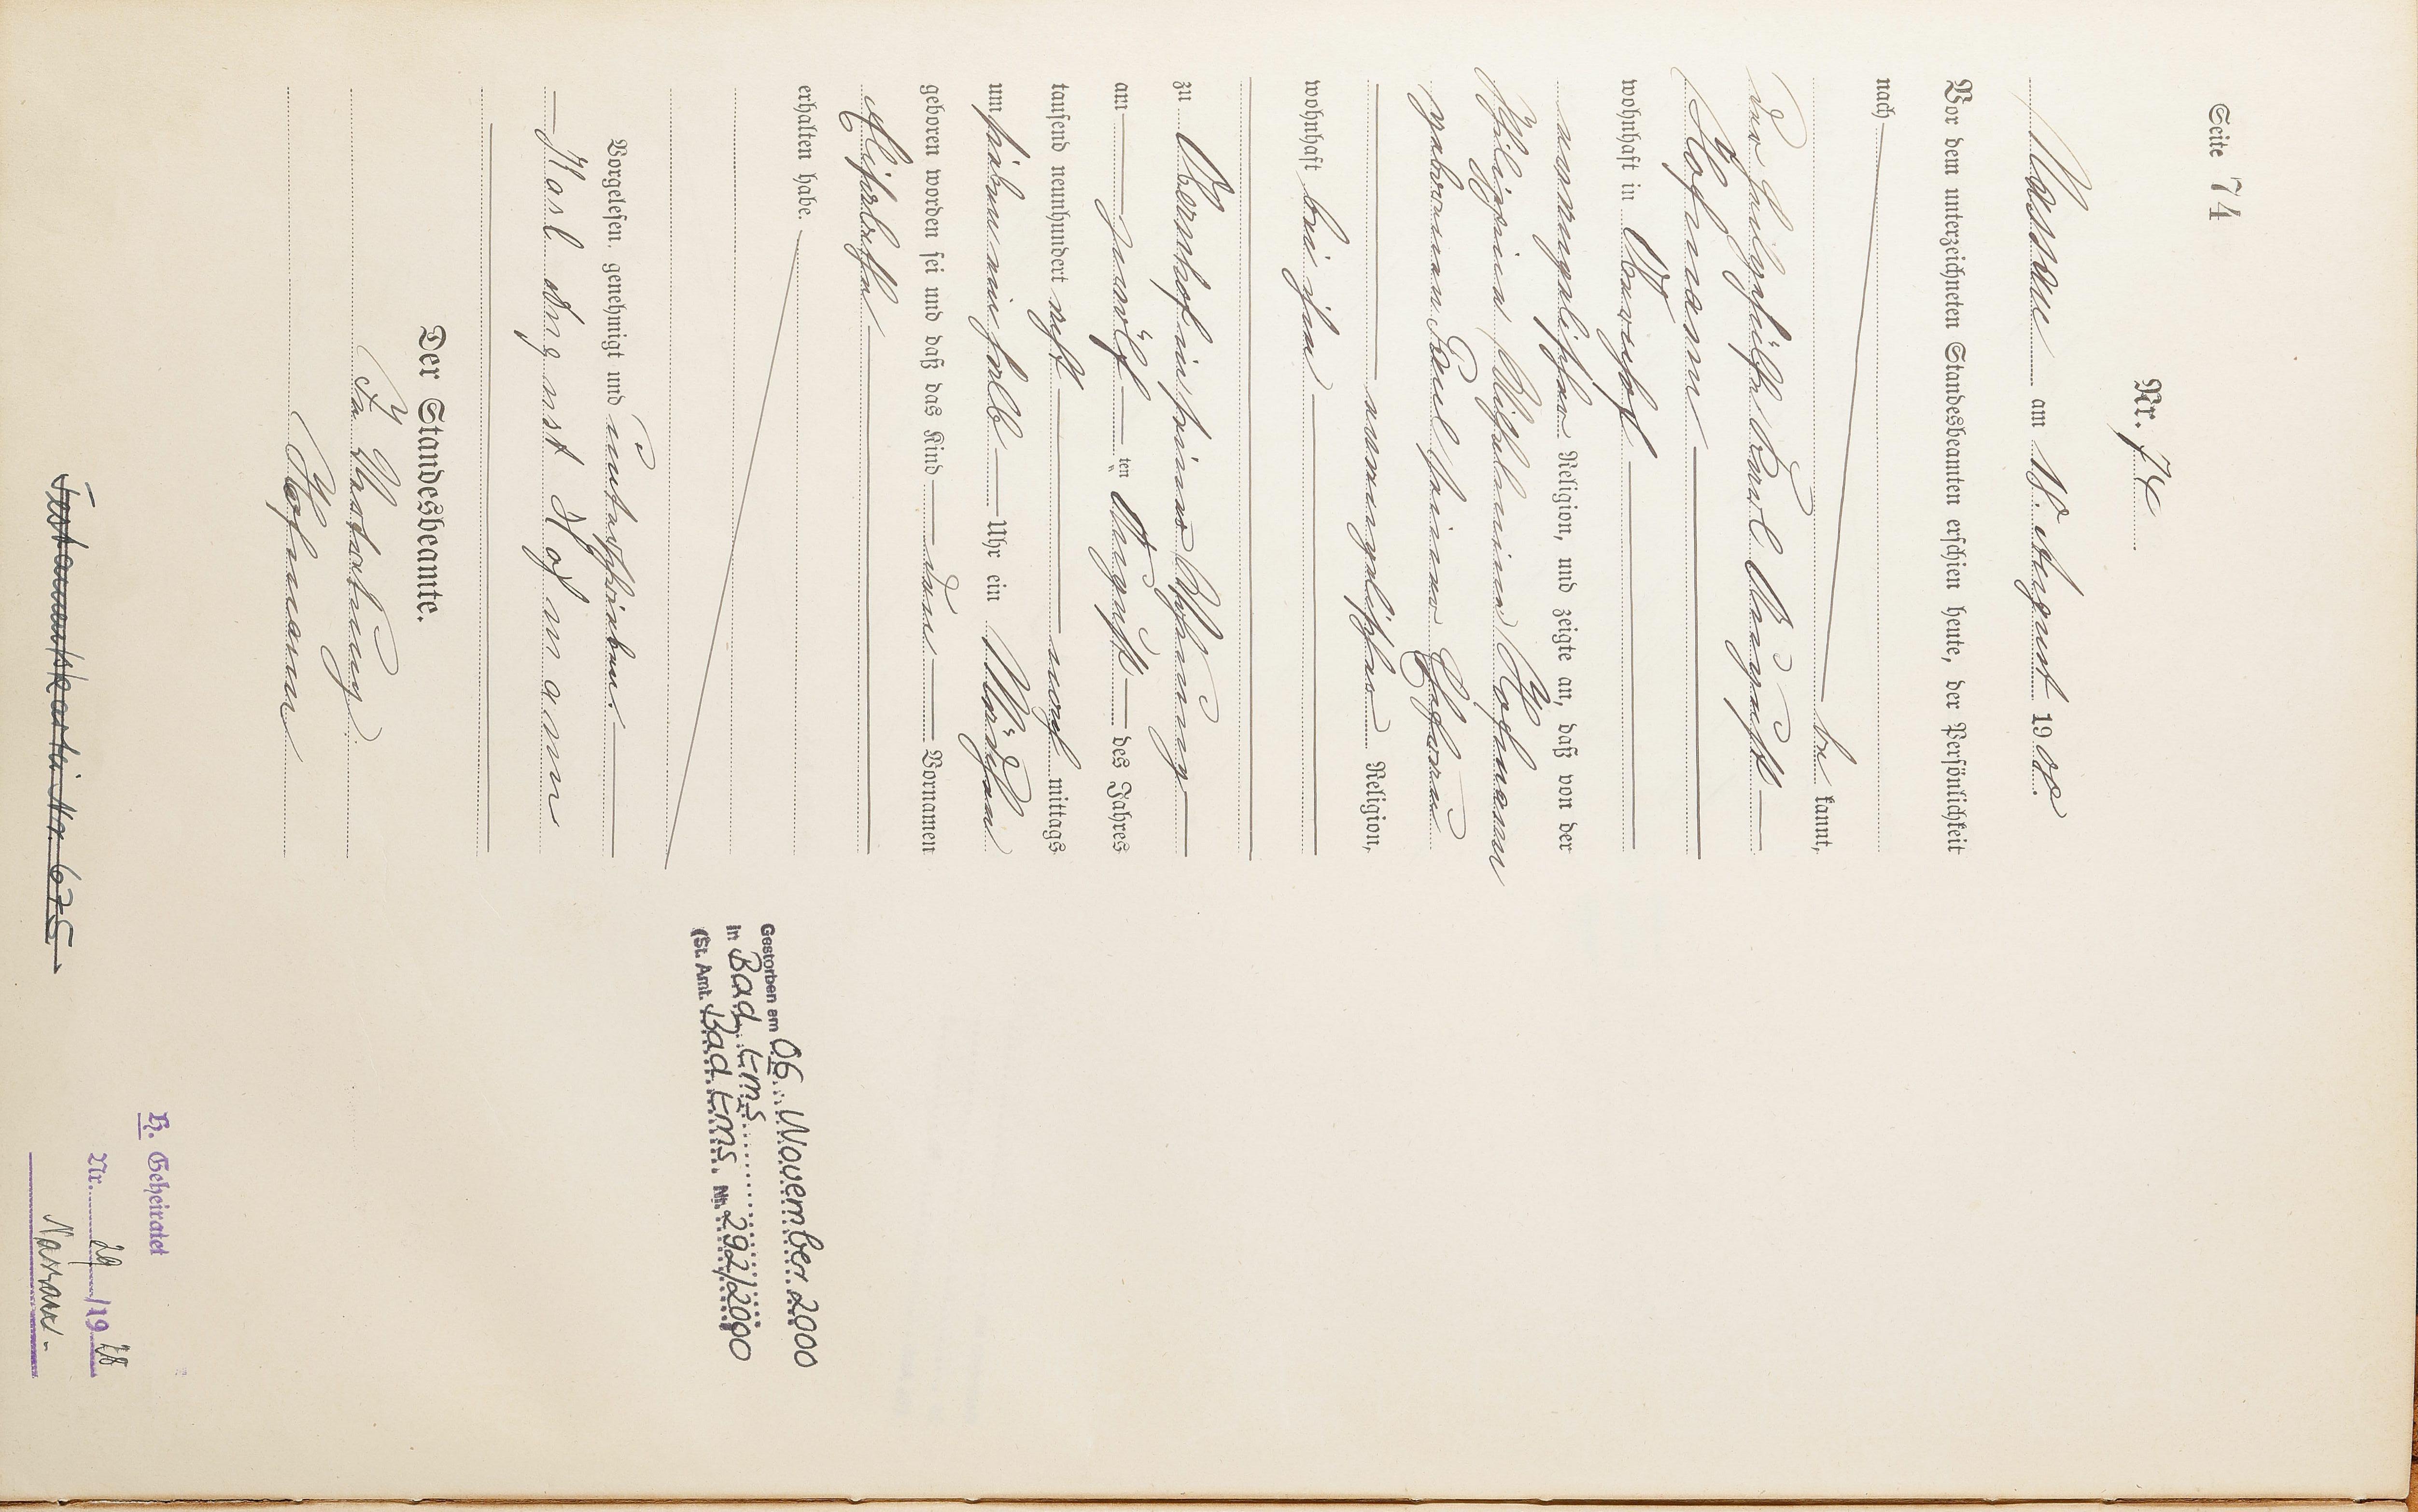 Seite 74
Nr. 74
Nassau am 18. August 1908.
Vor dem unterzeichneten Standesbeamten erschien heute, der Persönlichkeit
nach
be kannt,
der Karl August
Hofmann
wohnhaft in Obernhof
evangelischer Religion, und zeigte an, daß von der
Philippine Wilhelmine Hofmann
geborenen Paul, seiner Ehefrau
evangelischer Religion,
wohnhaft bei ihm
zu Obernhof in seiner Wohnung
am zwölf ten August des Jahres
tausend neunhundert acht nach mittags
um sieben ein halb Uhr ein Mädchen
geboren worden sei und daß das Kind den Vornamen
erhalten habe.
Vorgelesen, genehmigt und unterschrieben.
Karl August Hofmann
Der Standesbeamte.
In Vertretung
Hofmann
Gestorben am 06. November 2000
in Bad Ems
(St. Amt. Bad Ems Nr. 292/2000
Testamentskartei Nr. 675
H. Geheiratet
Nr. 29/19 28
Nassau.